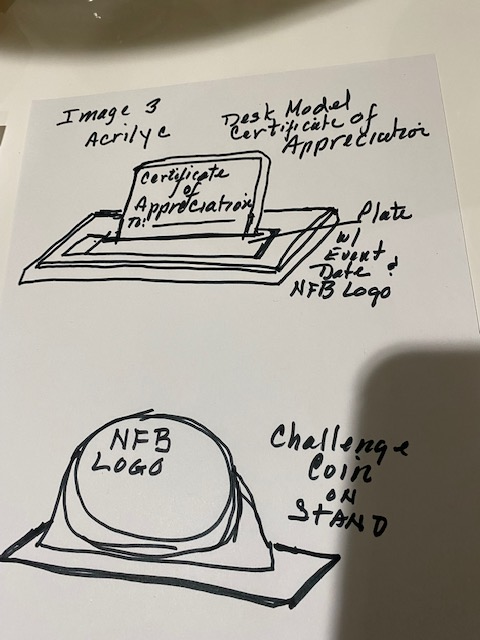 Image 3
Acrilyc
Desk Model
Certificate of
Appreciation
Certificate
of
Appreciation
To:
Plate
w/
Event
Date &
NFB Logo
NFB
LOGO
Challenge
Coin
ON
STAND